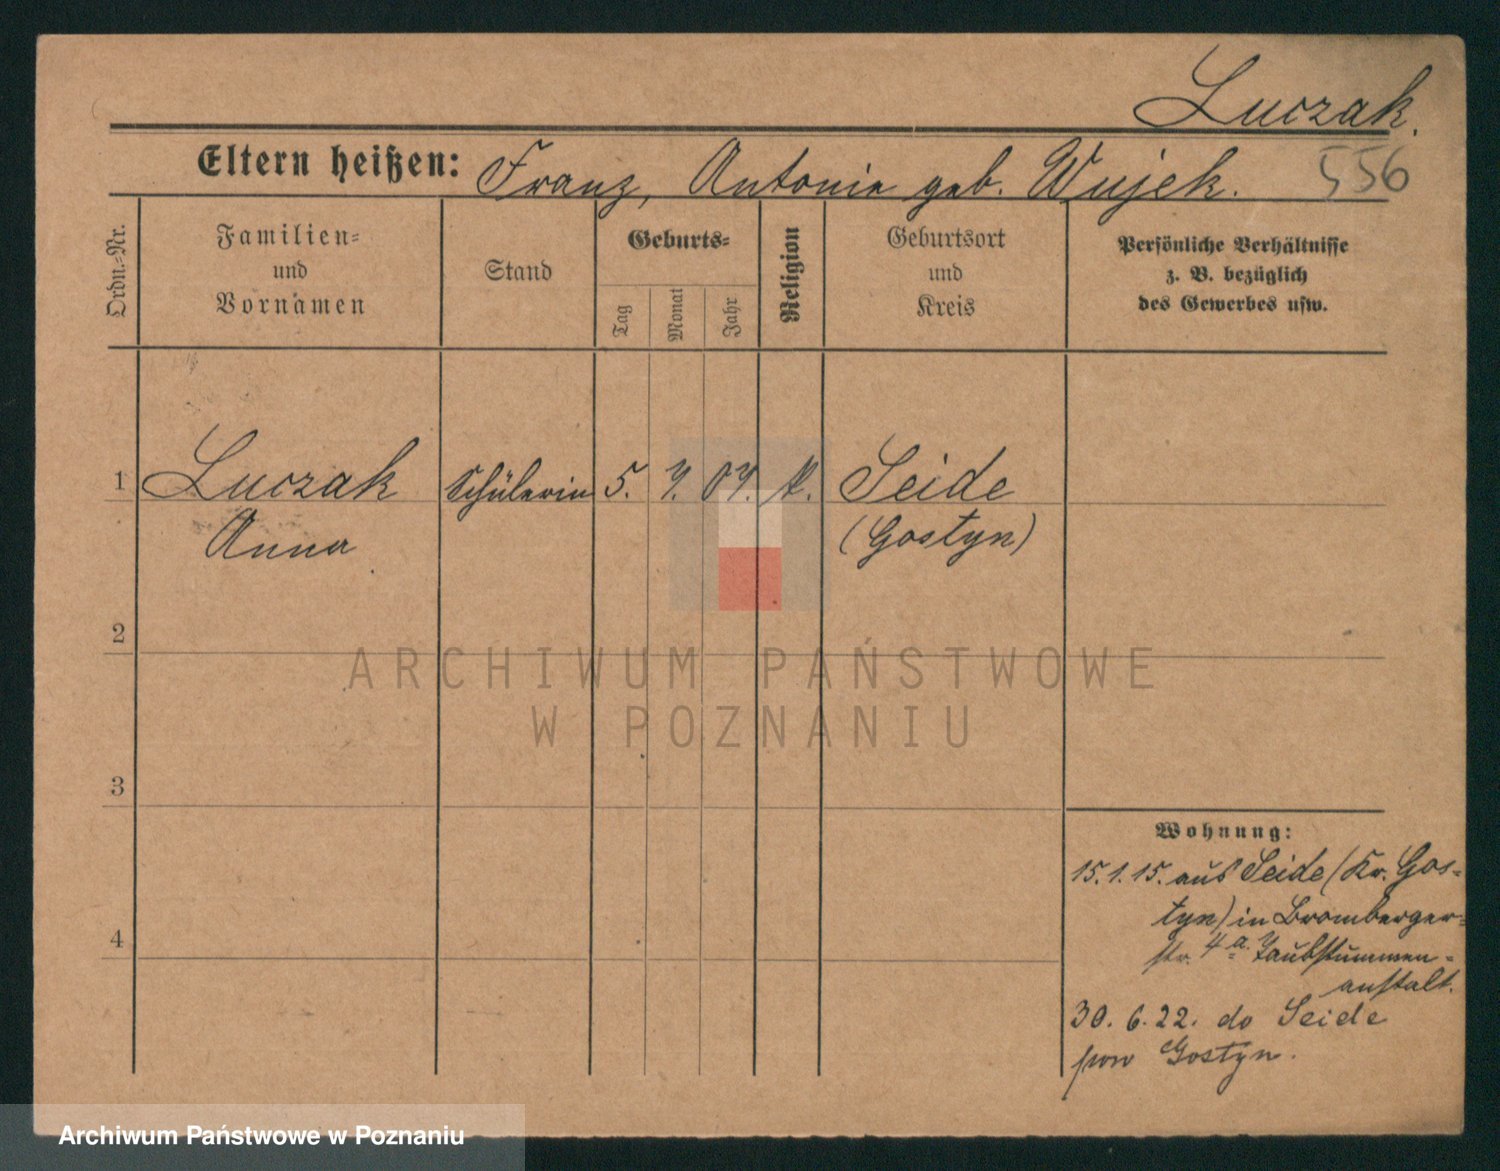 Luczak.
Eltern heißen: Franz, Antonie geb. Wujek.
556
Ordn.-Nr.
Familien-
und
Vornamen
Stand
Geburts-
Tag
Monat
Jahr
Religion
Geburtsort
und
Kreis
Persönliche Verhältnisse
z. B. bezüglich
des Gewerbes usw.
1 Luczak Schülerin 5. 7. 04. k. Seide
Anna (Gostyn)
2
3
4
Wohnung:
15.1.15. aus Seide (Kr. Gos-
tyn) in Bromberger-
str. 4a. Taubstummen-
anstalt.
30. 6. 22. do Seide
pow Gostyn.
ARCHIWUM PAŃSTWOWE
W POZNANIU
Archiwum Państwowe w Poznaniu